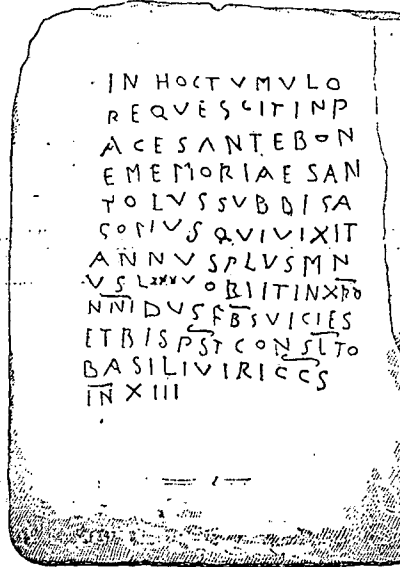 IN HOC TVMVLO
REQVESCIT IN P
ACE SANTE BON
E MEMORIAE SAN
TOLVS SVBDISA
CONVS QVI VIXIT
ANNVS PLVS MN
VS LXXXV OBIIT IN XPO
NNI DVS FBS VICIES
ET BIS PST CONSLTO
BASILI VIRI CCS
IN XIII